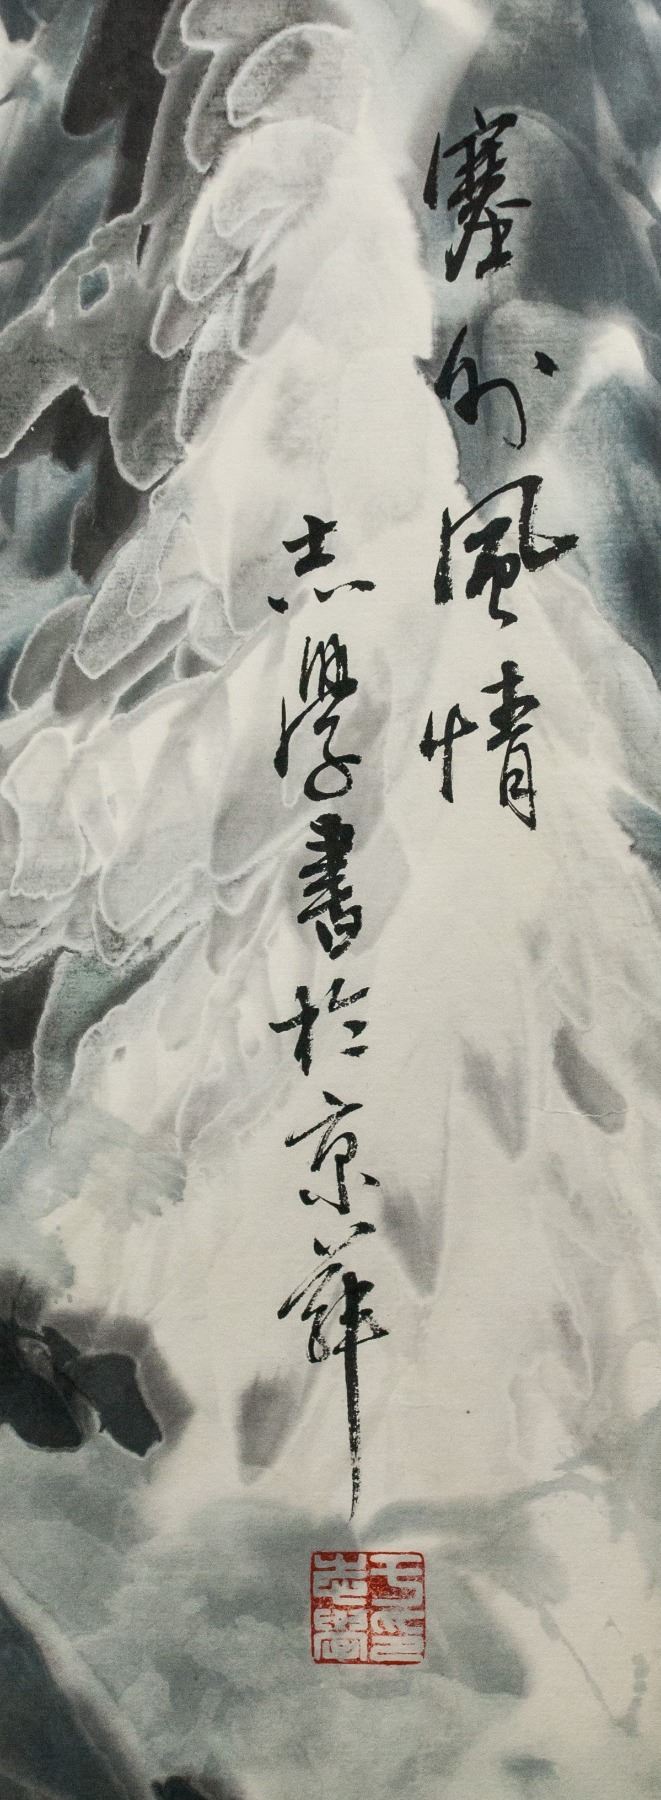 塞外風情
志學書於京華